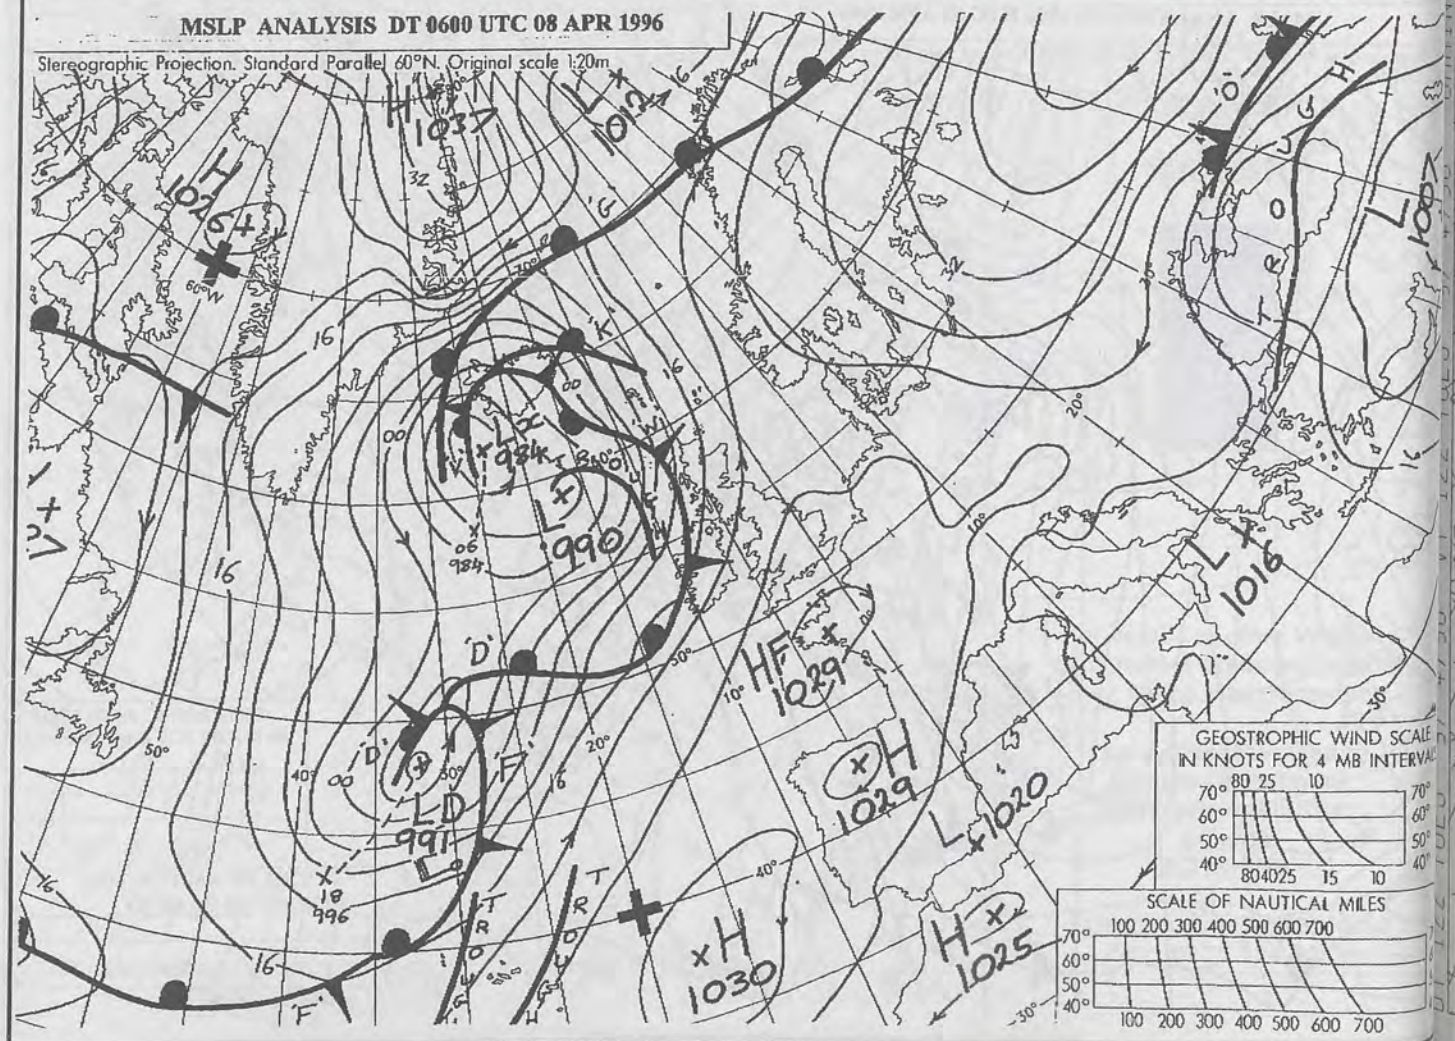 MSLP ANALYSIS DT 0600 UTC 08 APR 1996
Stereographic Projection. Standard Parallel 60°N. Original scale 1:20m
H
1037
L
1012
16
'O'
TROUGH
L
1007
H
1026
32
'G'
70°
60°W
16
'K'
16
00
00
L
984
L
990
06
984
16
'D'
50°
10°
HF
1029
H
1029
L
1016
20°
10°
16
30°
50°
40°
00
'D'
30°
'F'
20°
16
LD
991
18
996
16
16
'F'
TROUGH
TROUGH
H
1030
40°
L
1020
H
1025
30°
GEOSTROPHIC WIND SCALE
IN KNOTS FOR 4 MB INTERVAL
80 25 10
70° 70°
60° 60°
50° 50°
40° 40°
80 40 25 15 10
SCALE OF NAUTICAL MILES
100 200 300 400 500 600 700
70°
60°
50°
40°
100 200 300 400 500 600 700